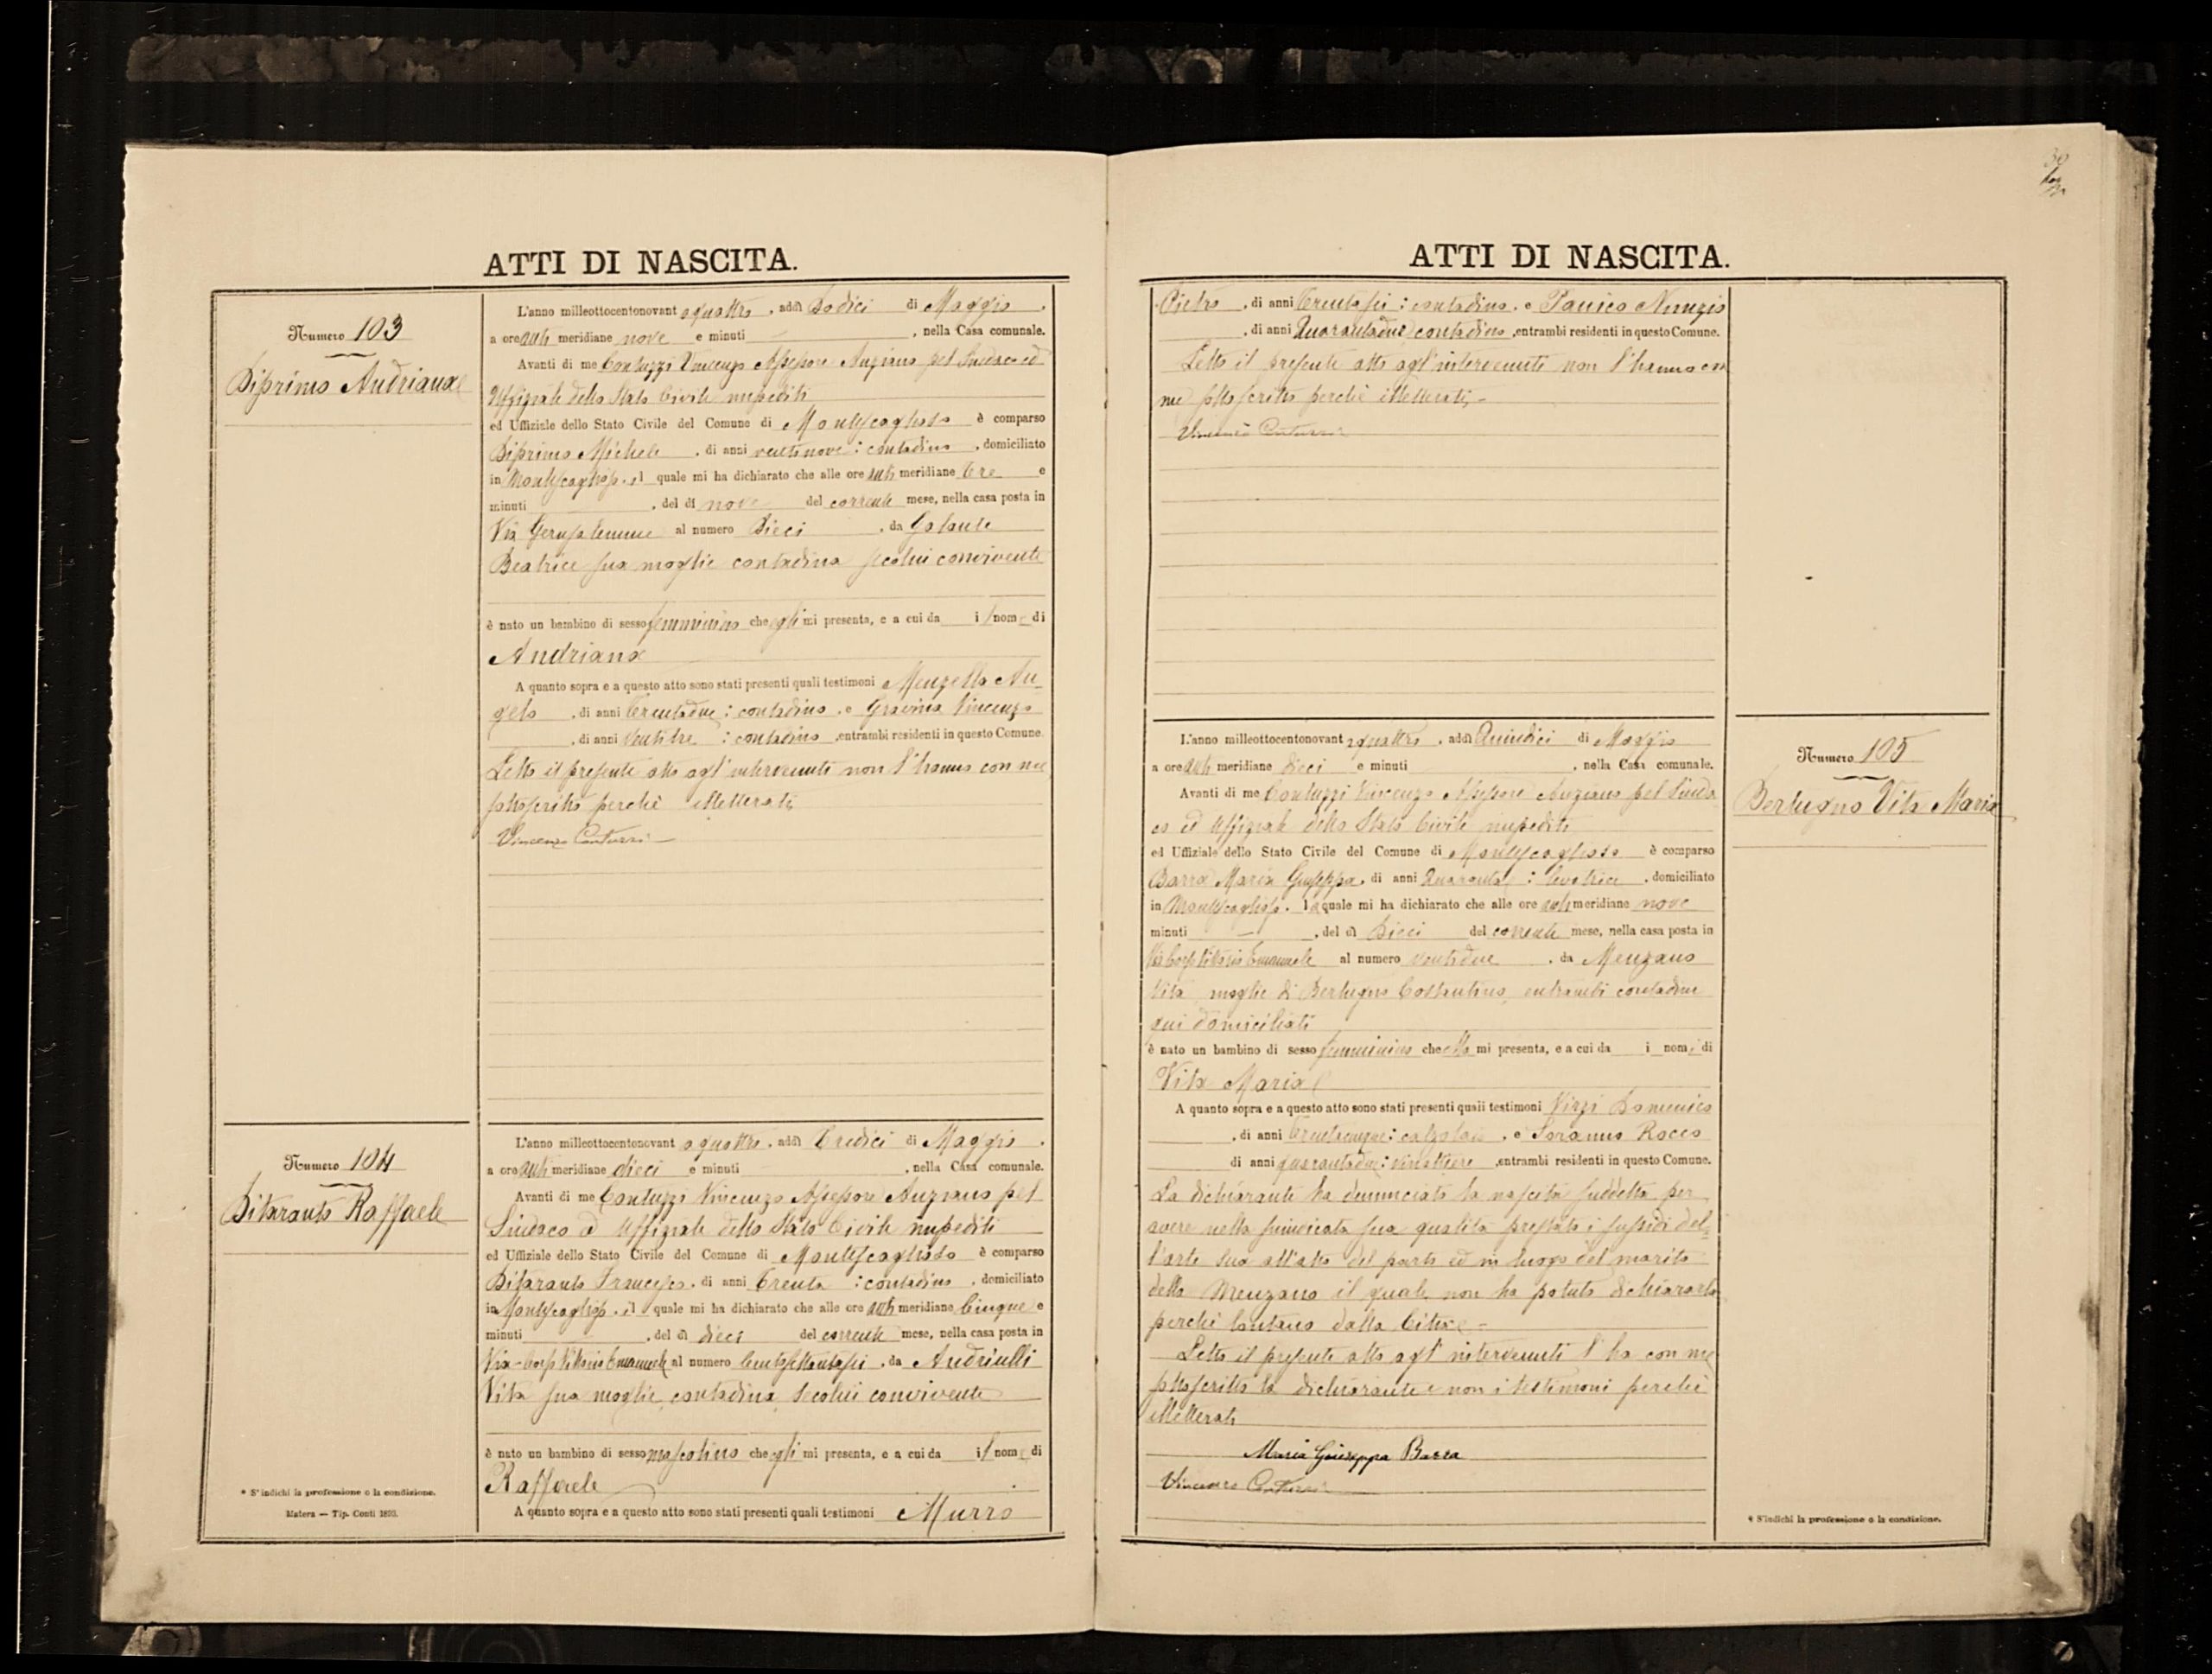 ATTI DI NASCITA.
Numero 103
Disprimo Andriana
L'anno millottocentonovantaquattro, addì Dodici di Maggio,
a ore anti meridiane nove e minuti , nella Casa comunale.
Avanti di me Contuzzi Vincenzo Assessore Anziano pel Sindaco ed
Uffiziale dello Stato Civile impediti
ed Uffiziale dello Stato Civile del Comune di Montescaglioso è comparso
Disprimo Michele, di anni ventinove: contadino, domiciliato
in Montescaglioso, il quale mi ha dichiarato che alle ore anti meridiane tre e
minuti , del dì nove del corrente mese, nella casa posta in
Via Gerusalemme al numero Dieci, da Galante
Beatrice sua moglie contadina secolui convivente
è nato un bambino di sesso femminino che egli mi presenta, e a cui da il nome di
Andriana
A quanto sopra e a questo atto sono stati presenti quali testimoni Menzella An-
gelo, di anni trentadue: contadino, e Gravina Vincenzo
, di anni ventitre: contadino, entrambi residenti in questo Comune.
Letto il presente atto agl'intervenuti non l'hanno con me
sottoscritto perchè illetterati
Vincenzo Contuzzi
Numero 104
Ditaranto Raffaele
L'anno millottocentonovantaquattro, addì Tredici di Maggio,
a ore anti meridiane dieci e minuti , nella Casa comunale.
Avanti di me Contuzzi Vincenzo Assessore Anziano pel
Sindaco ed Uffiziale dello Stato Civile impediti
ed Uffiziale dello Stato Civile del Comune di Montescaglioso è comparso
Ditaranto Francesco, di anni Trenta: contadino, domiciliato
in Montescaglioso, il quale mi ha dichiarato che alle ore anti meridiane Cinque e
minuti , del dì dieci del corrente mese, nella casa posta in
Via Corso Vittorio Emanuele al numero Centosettantasei, da Andriulli
Vita sua moglie, contadina, secolui convivente
è nato un bambino di sesso mascolino che egli mi presenta, e a cui da il nome di
Raffaele
A quanto sopra e a questo atto sono stati presenti quali testimoni Murro
* S'indichi la professione o la condizione.
Matera — Tip. Conti 1893.
30
ATTI DI NASCITA.
Pietro, di anni Trentasei: contadino, e Panico Nunzio
, di anni Quarantadue contadino, entrambi residenti in questo Comune.
Letto il presente atto agl'intervenuti non l'hanno con
me sottoscritto perchè illetterati.-
Vincenzo Contuzzi
Numero 105
Bertugno Vita Maria
L'anno millottocentonovantaquattro, addì Quindici di Maggio
a ore anti meridiane dieci e minuti , nella Casa comunale.
Avanti di me Contuzzi Vincenzo Assessore Anziano pel Sinda
co ed Uffiziale dello Stato Civile impediti
ed Uffiziale dello Stato Civile del Comune di Montescaglioso è comparso
Barra Maria Giuseppa, di anni Quaranta: levatrice, domiciliato
in Montescaglioso. la quale mi ha dichiarato che alle ore anti meridiane nove
minuti — , del dì Dieci del corrente mese, nella casa posta in
Via Corso Vittorio Emanuele al numero ventidue, da Menzano
Vita, moglie di Bertugno Costantino, entrambi contadini
qui domiciliati
è nato un bambino di sesso femminino che ella mi presenta, e a cui da i nomi di
Vita Maria
A quanto sopra e a questo atto sono stati presenti quali testimoni Virzi Domenico
, di anni Trentacinque: calzolaio, e Soranno Rocco
di anni quarantadue: vinattiere, entrambi residenti in questo Comune.
La dichiarante ha denunciato la nascita suddetta per
avere nella suindicata sua qualità prestati i sussidi del-
l'arte sua all'atto del parto ed in luogo del marito
della Menzano il quale, non ha potuto dichiararla
perchè lontano dalla Città -
Letto il presente atto agl'intervenuti l'ha con me
sottoscritto la dichiarante e non i testimoni perchè
illetterati
Maria Giuseppa Barra
Vincenzo Contuzzi
* S'indichi la professione o la condizione.